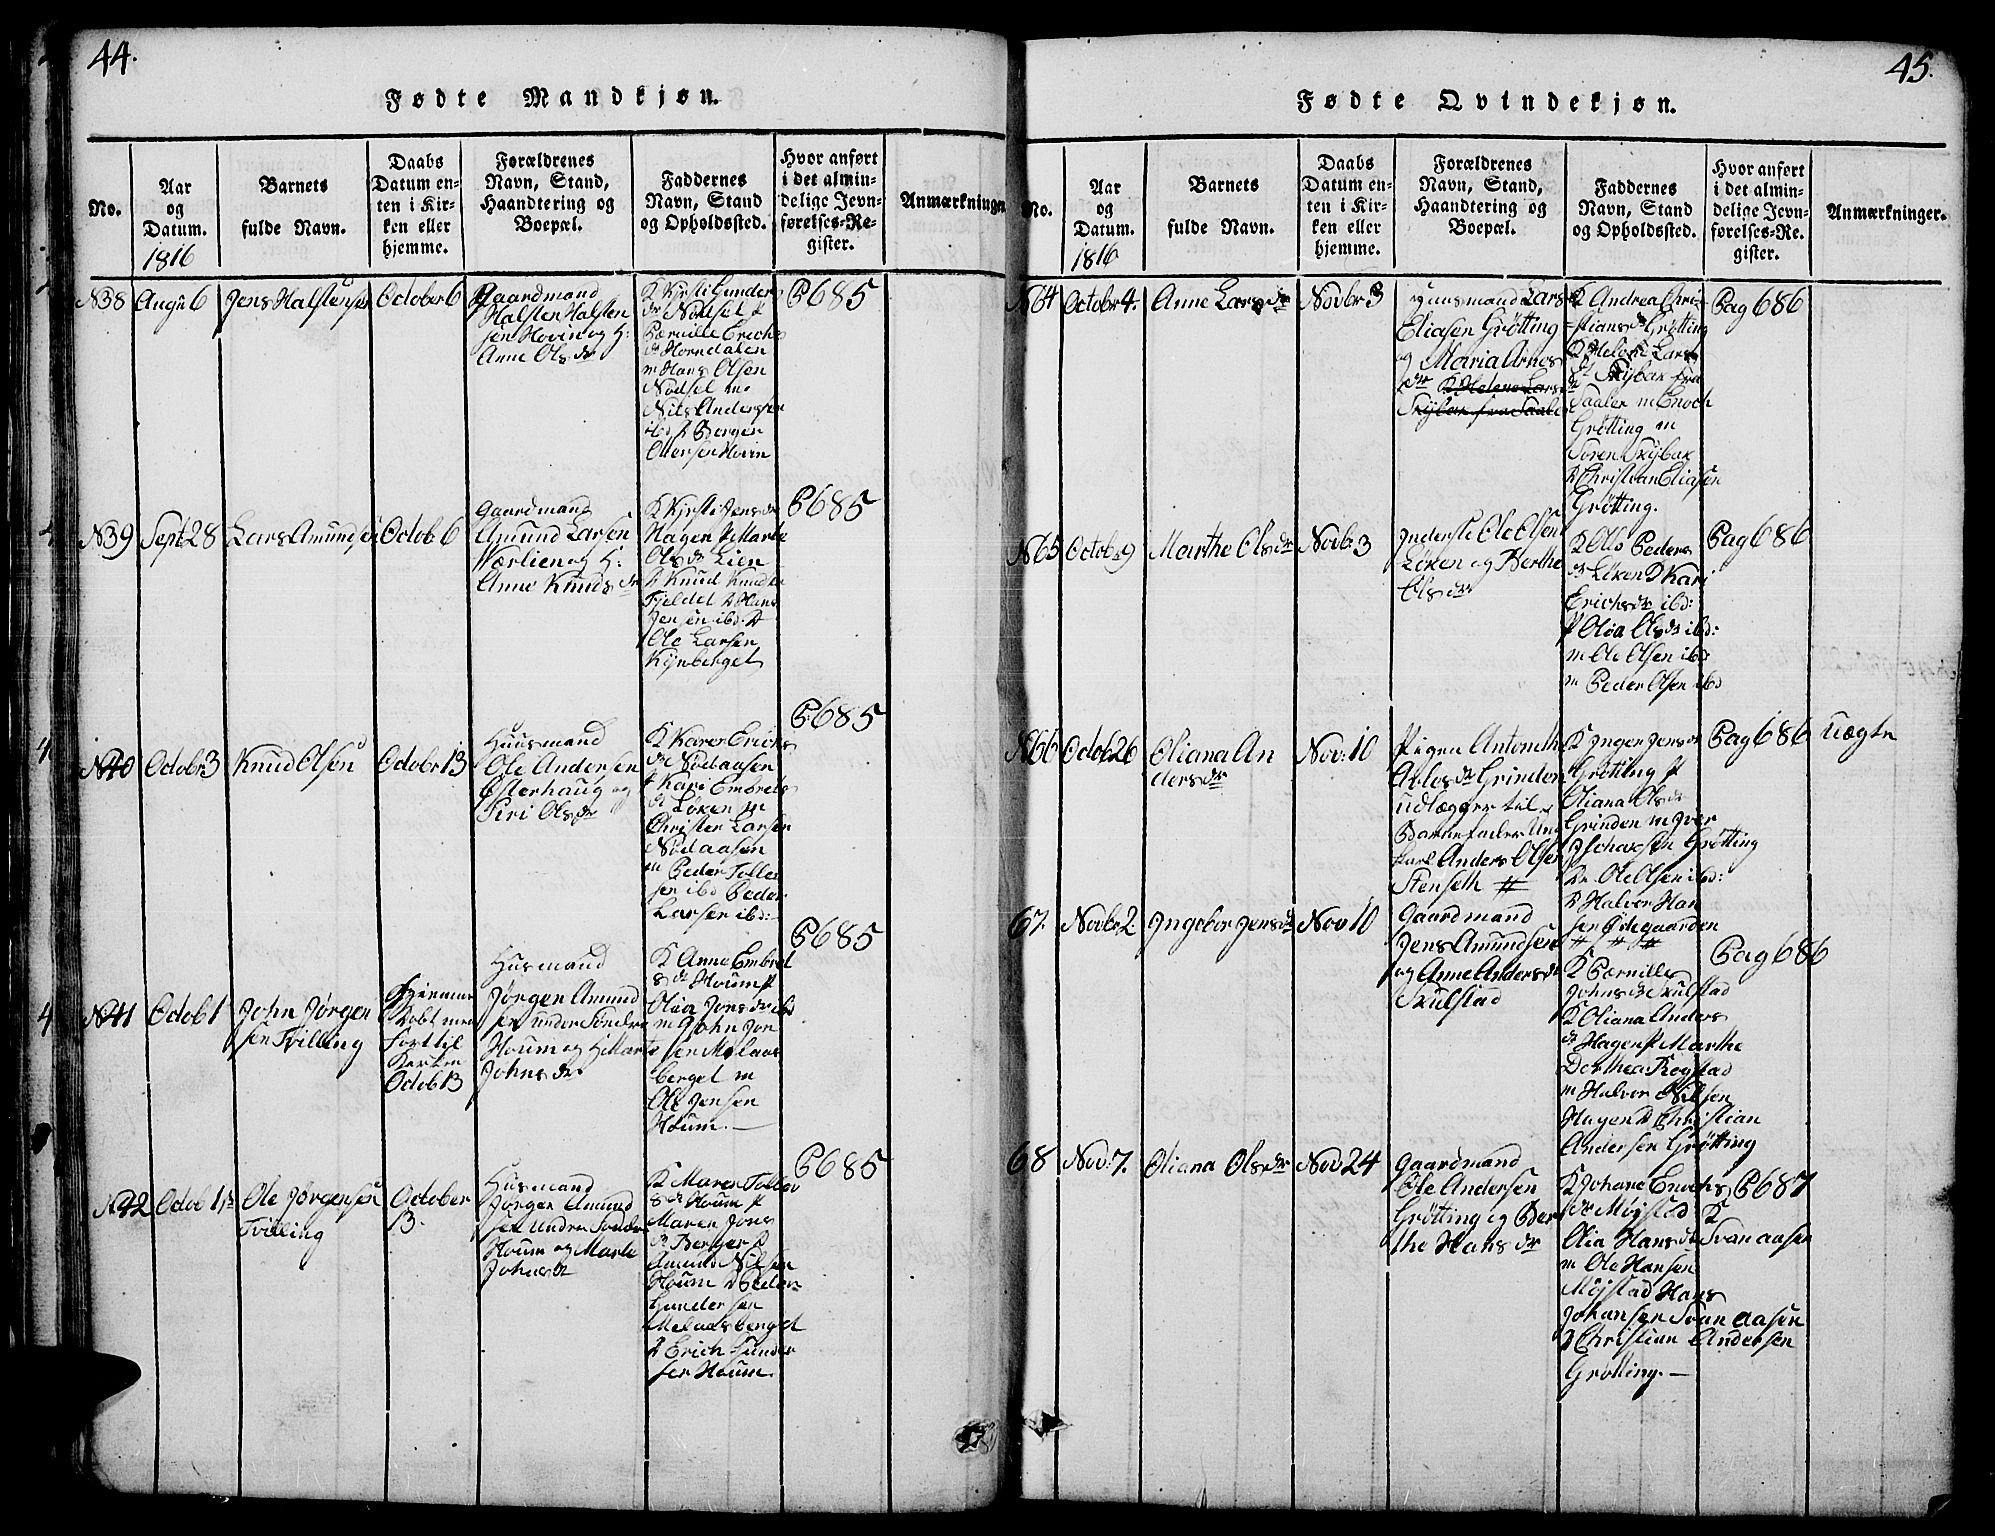 44.
Fødte Mandkjøn.
No.
Aar
og
Datum.
1816
Barnets
fulde Navn.
Daabs
Datum en-
ten i Kir-
ken eller
hjemme.
Forældrenes
Navn, Stand,
Haandtering og
Boepæl.
Faddernes
Navn, Stand
og Opholdssted.
Hvor anført
i det almin-
delige Jevn-
førelses-Re-
gister.
Anmærkninger
N38
Augu 6
Jens Halstensen
October 6
Gaardmand
Halsten Halsten
sen Hovin og H:
Anne Olsdr
K Kirsti Gunders
dr Nodsel P
Pernille Erichs
dr Horndalen
m Hans Olsen
Nodsel m
Nils Andersen
ibd D Bergen
Ottersen Hovin
P685
N39
Sept 28
Lars Amundsen
Octob 6
Gaardmand
Amund Larsen
Værlien og H:
Anne Knudsdr
K Kirsti Jensdr
Hagen P Marte
Olsdr Lien
D Knud Knuds
Fjeldet D Hans
Jensen ibd. D
Ole Larsen
Kynberget
P685
N40
Octobr 3
Knud Olsen
Octobr 13
Huusmand
Ole Andersen
Østerhaug og
Siri Olsdr
K Karen Erichs
dr Nodaasen
P Kari Embrets
dr Løken m
Christen Larsen
Nodaasen
m Peder Tolles
sen ibd Peder
Larsen ibd:
P685
N41
Octob 1
John Jørgen
sen Tvilling
Hiemme
Døbt men
fort til
Kirken
Octob 13
Husmand
Jørgen Amund
sen under Sønder
Houm og H Marte
Johnsdr
K Anne Embret
sdr Houm P
Olia Jonsdr ibd
m John Jon
sen Melaas
berget m
Ole Jensen
Houm.
P685
N42
Octob 1
Ole Jørgensen
Tvilling
October
13.
Husmand
Jørgen Amund
sen under Sønder
Houm og Marte
Johnsdr
K Maren Tollev
sdr Houm P
Maren Jons
dr Berger D
Amund Nilsen
Houm D Peder
Gundersen
Melaasberget
D Erich Gunder
sen Houm.
P685
45.
Fødte Qvindekjøn.
No.
Aar
og
Datum.
1816
Barnets
fulde Navn.
Daabs
Datum en-
ten i Kir-
ken eller
hjemme.
Forældrenes
Navn, Stand,
Haandtering og
Boepæl.
Faddernes
Navn, Stand
og Opholdssted.
Hvor anført
i det almin-
delige Jevn-
førelses-Re-
gister.
Anmærkninger.
N64
Octobr 4.
Anne Larsdr
Novbr 3
Huusmand Lars
Eliasen Grøtting
og Maria Arnes
dr K Helene Lars
Skybak fra Saaler
K Andrea Chri-
stiansdr Grøtting
K Helene Lars
dr Skybak fra
Saaler m Enoch
Grøtting m
Soren Skybak
D Christian Eliasen
Grøtting.
Pag 686
N65
Octobr 9
Marthe Olsdr
Novbr 3
Inderste Ole Olsen
Løken og Berthe
Olsdr
K Olia Peders
dr Løken D Kari
Erichsdr ibd:
P Oloa Olsdr ibd:
m Ole Olsen ibd
m Peder Olsen ibd
Pag 686
N66
Octob 26
Oliana An
dersdr
Nov: 10
Pigen Antoneth
Arlosdr Grinden
udlægger til
Barnefader Ung
karl Anders Olsen
Stenseth #
K Inger Jensdr
Grøtting P
Oliana Olsdr
Grinden m Iver
Ischarsen Grøtting
Dr Ole Olsen ibd:
D Halvor Han
sen Ødegaarden
# # #
Pag 686
Uægte
67.
Novbr 2.
Ingebor Jensdr
Nov 10
Gaardmand
Jens Amundsen
og Anne Andersdr
Skulstad
K Pernille
Johnsdr Skulstad
K Oliana Anders
dr Hagen P Marthe
Dorthea Rogstad
m Halvor Nilsen
Hagen D Christian
Andersen Grøtting
Pag 686
68
Nov: 7.
Oliana Olsdr
Nov 24
Gaardmand
Ole Andersen
Grøtting og Ber
the Hansdr
K Johane Enochs
dr Mojstad K
Olia Hansdr Svanaasen
m Ole Hansen
Mojstad Hans
Johansen Svanaasen
D Christian Andersen
Grøtting.
P687